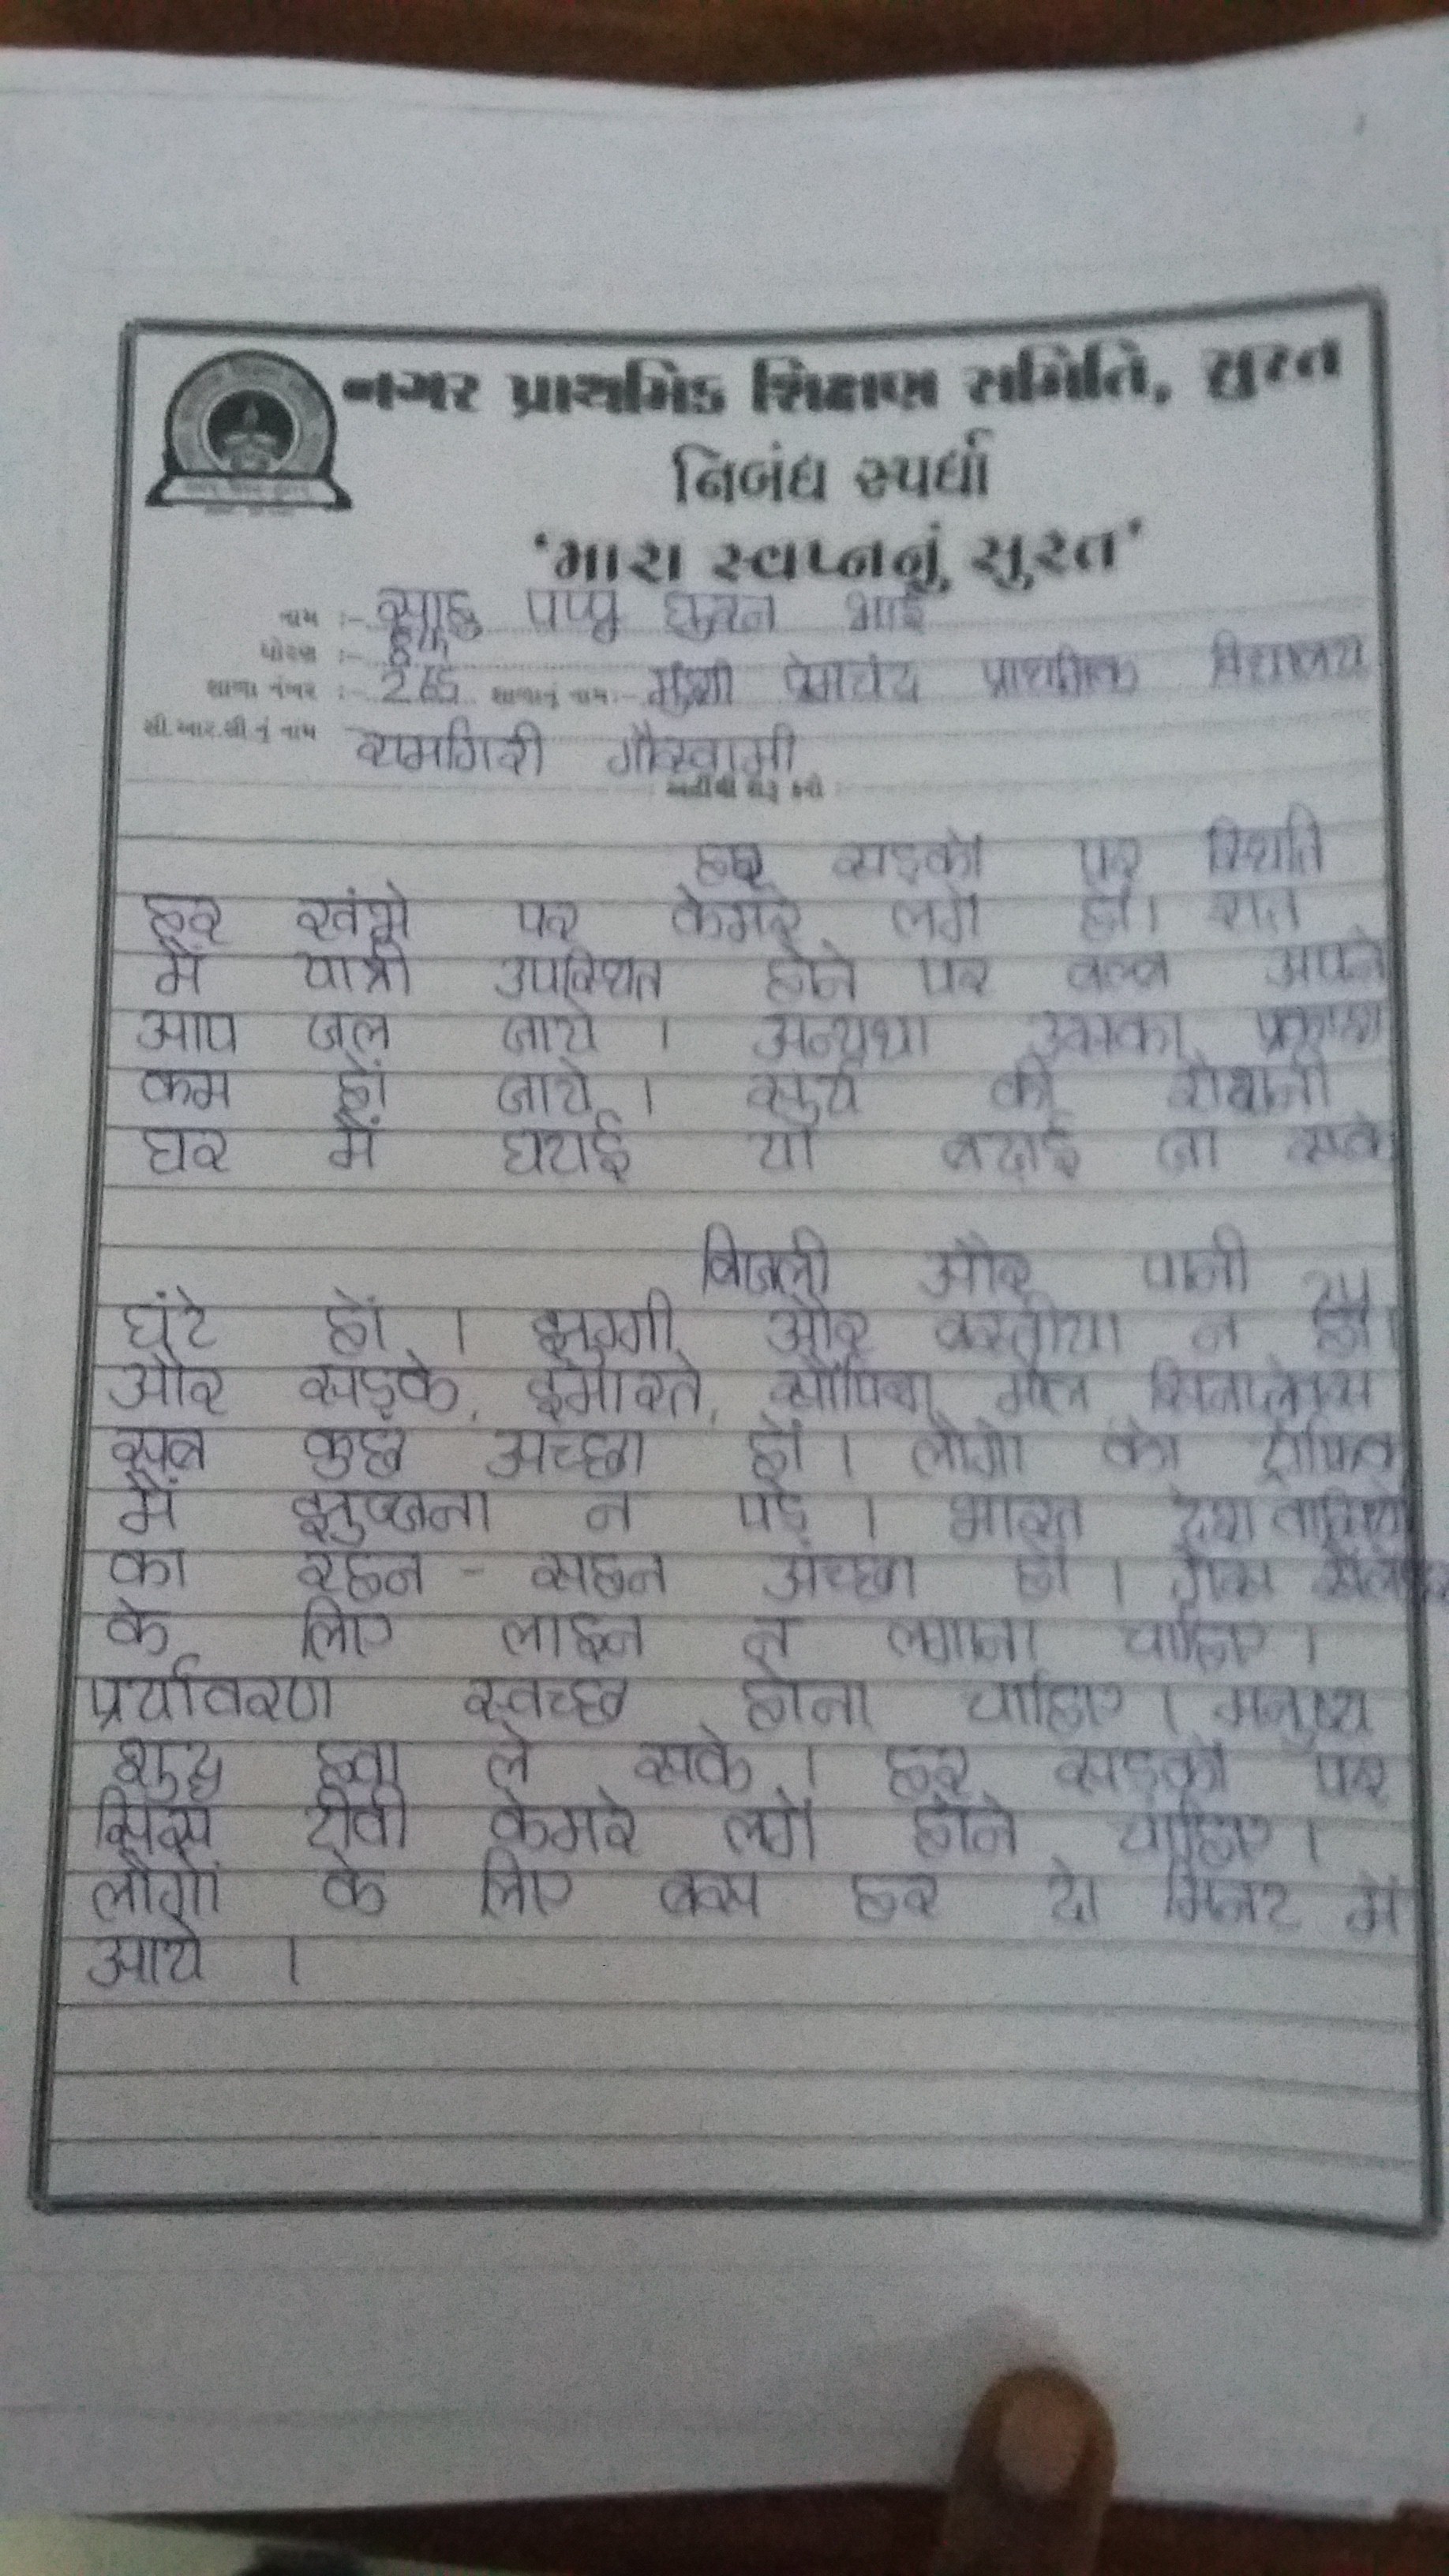 નગર પ્રાથમિક શિક્ષણ સમિતિ, સુરત
નિબંધ સ્પર્ધા
'મારા સ્વપ્નનું સુરત'
નામ :- साहु पप्पु भाई
ધોરણ :- 8th
શાળા નંબર :- શાળાનું નામ :- मुंशी प्रेमचंद प्राथमिक विद्यालय
સી.આર.સી.નું નામ रामगिरी गौस्वामी
અહીંથી શરૂ કરો :
हर सड़को पर स्थिति
हर खंभे पर केमरे लगे हो। रात
में यात्री उपस्थित होने पर बल्ब अपने
आप जल जाये । अन्यथा उसका प्रकाश
कम हो जाये । सुर्य की रोशनी
घर में घटाई या बढ़ाई जा सके
बिजली और पानी 24
घंटे हों । झुग्गी और बस्तीया न हो।
और सड़के, इमारते, सोपिंग मोल
सब कुछ अच्छा हो । लोगो को ट्राफिक
में झुज्जना न पड़े । भारत देश वासियो
का रहन - सहन अच्छा हो । गैस
के लिए लाइन न लगाना चाहिए ।
प्रर्यावरण स्वच्छ होना चाहिए । मनुष्य
शुद्ध हवा ले सके । हर सड़को पर
सिस टीवी केमरे लगे होने चाहिए ।
लोगों के लिए बस हर दो मिनट में
आये ।